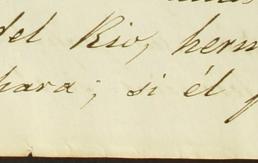 del Rio, herm
hara; si él